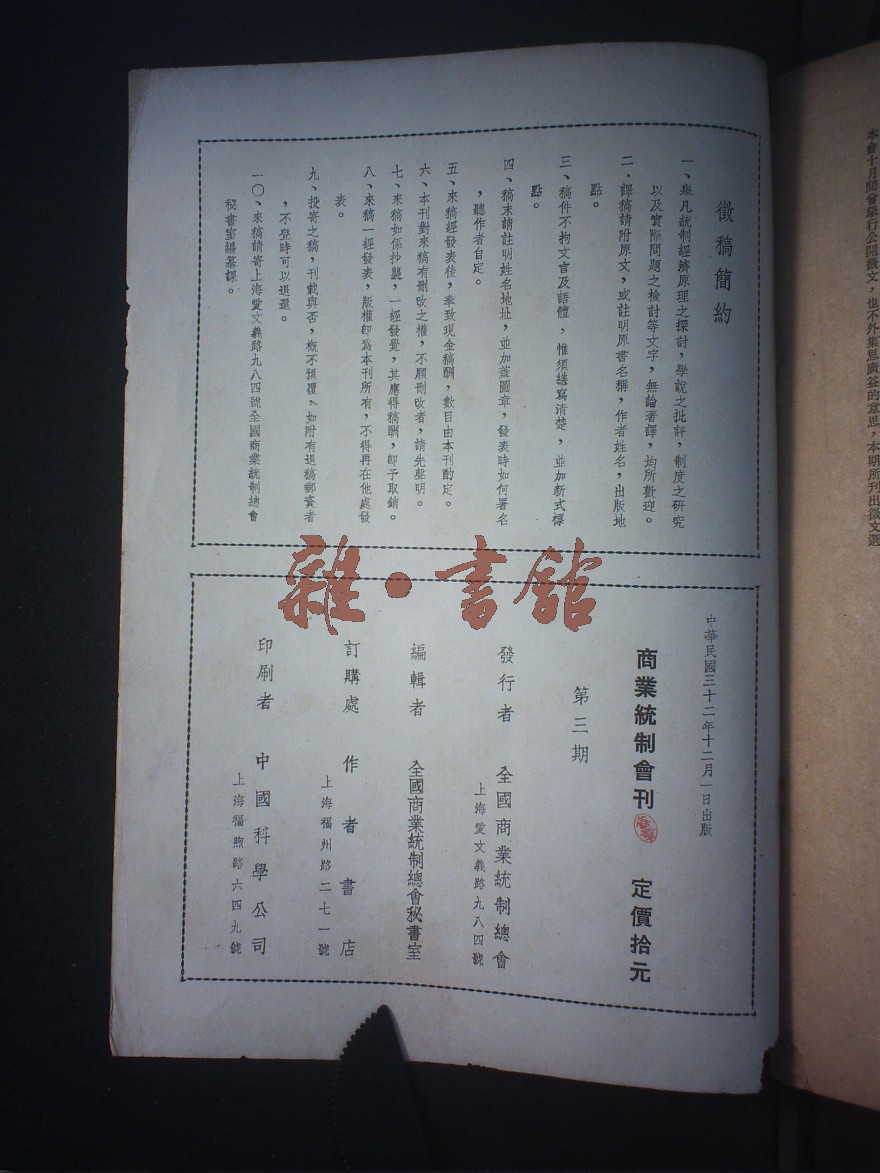 本會十月間會舉行公開徵文，也不外集思廣益的意思，本期所刊出徵文選
徵稿簡約
一、舉凡統制經濟原理之探討，學說之批評，制度之研究
以及實際問題之檢討等文字，無論著譯，均所歡迎。
二．譯稿請附原文，或註明原書名稱，作者姓名，出版地
點。
三、稿件不拘文言及語體，惟須繕寫清楚，並加新式標
點。
四、稿末請註明姓名地址，並加蓋圖章，發表時如何署名
，聽作者自定。
五、來稿經發表後，奉致現金稿酬，數目由本刊酌定。
六、本刊對來稿有刪改之權，不願刪改者，請先聲明。
七、來稿如係抄襲，一經發覺，其應得稿酬，卽予取銷。
八、來稿一經發表，版權卽爲本刊所有，不得再在他處發
表。
九、投寄之稿，刊載與否，概不預覆，如附有退稿郵資者
，不登時可以退還。
一〇、來稿請寄上海愛文義路九八四號全國商業統制總會
秘書室編纂課。
中華民國三十二年十二月一日出版
商業統制會刊 定價拾元
第三期
發行者 全國商業統制總會
上海愛文義路九八四號
編輯者 全國商業統制總會秘書室
訂購處 作者書店
上海福州路二七一號
印刷者 中國科學公司
上海福煦路六四九號
雜·書館